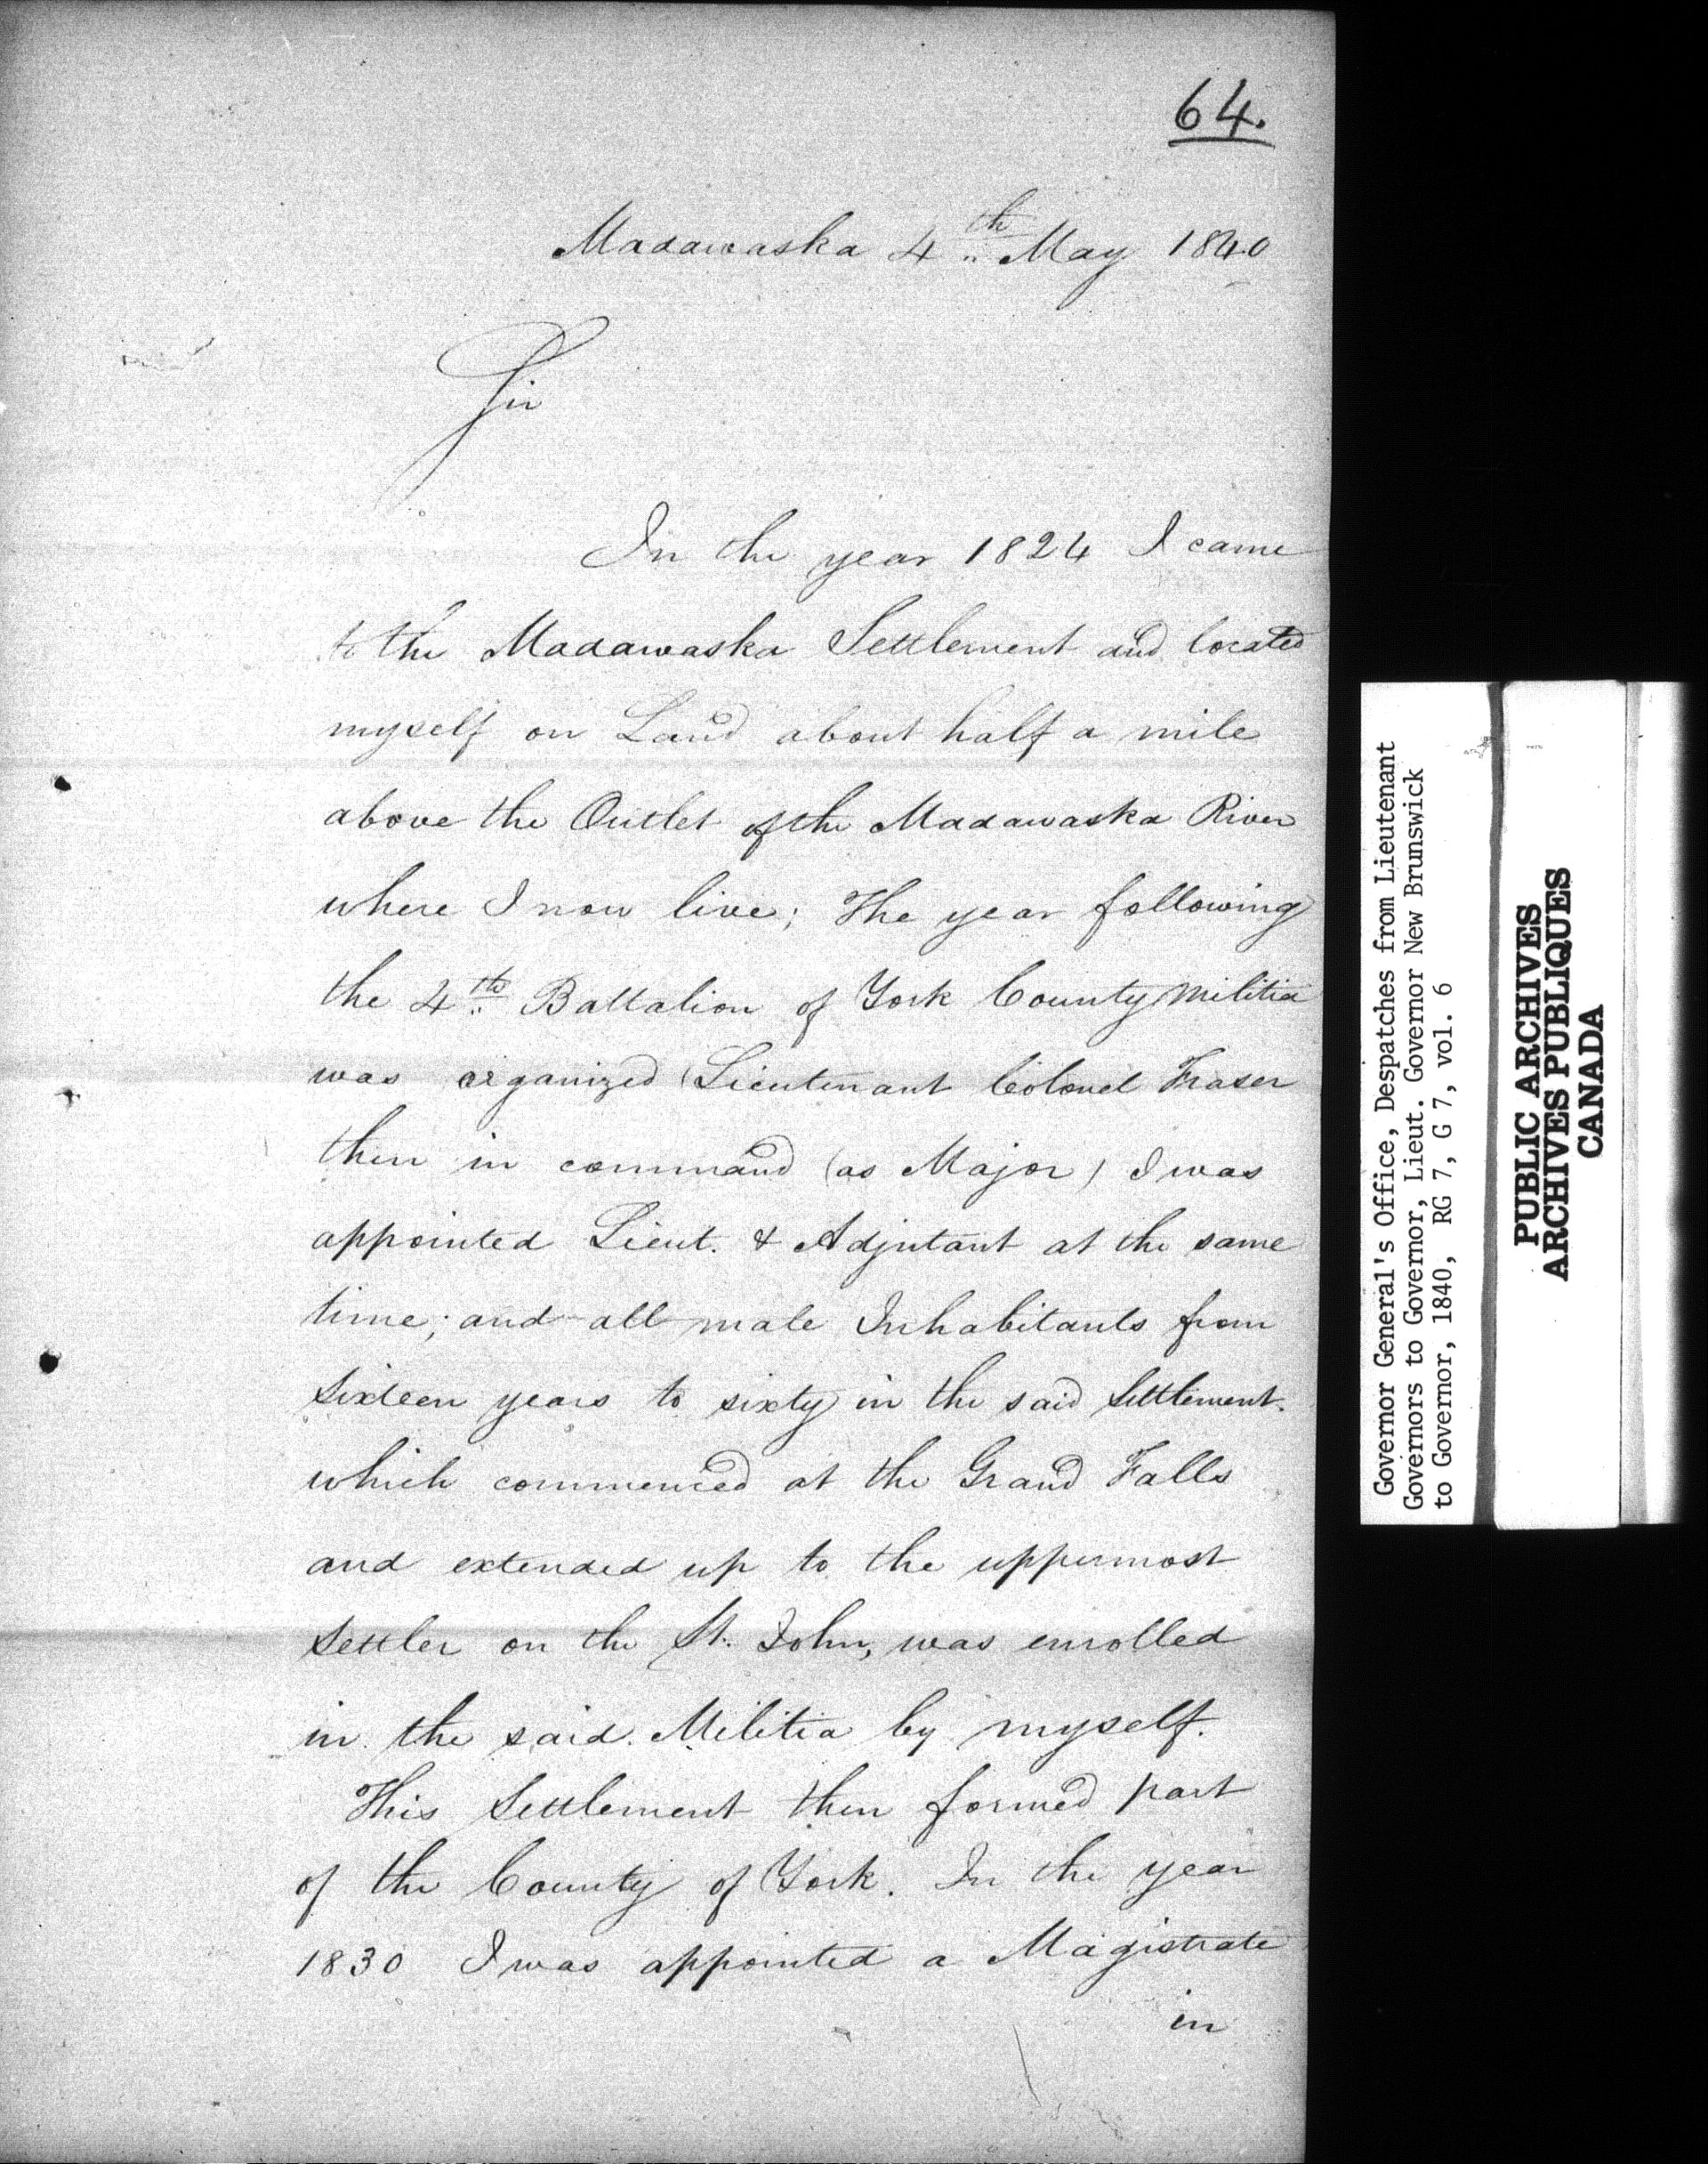 64.
Madawaska 4th May 1840
Sir
In the year 1824 I came
to the Madawaska Settlement and located
myself on Land about half a mile
above the Outlet of the Madawaska River
where I now live; The year following
the 4th Battalion of York County Militia
was organized (Lieutenant Colonel Fraser
then in command (as Major) I was
appointed Lieut. & Adjutant at the same
time; and all male Inhabitants from
Sixteen years to sixty in the said Settlement.
which commenced at the Grand Falls
and extended up to the uppermost
Settler on the St. John, was enrolled
in the said Militia by myself.
This Settlement then formed part
of the County of York. In the year
1830 I was appointed a Magistrate
in
Governor General's Office, Despatches from Lieutenant
Governors to Governor, Lieut. Governor New Brunswick
to Governor, 1840, RG 7, G 7, vol. 6
PUBLIC ARCHIVES
ARCHIVES PUBLIQUES
CANADA